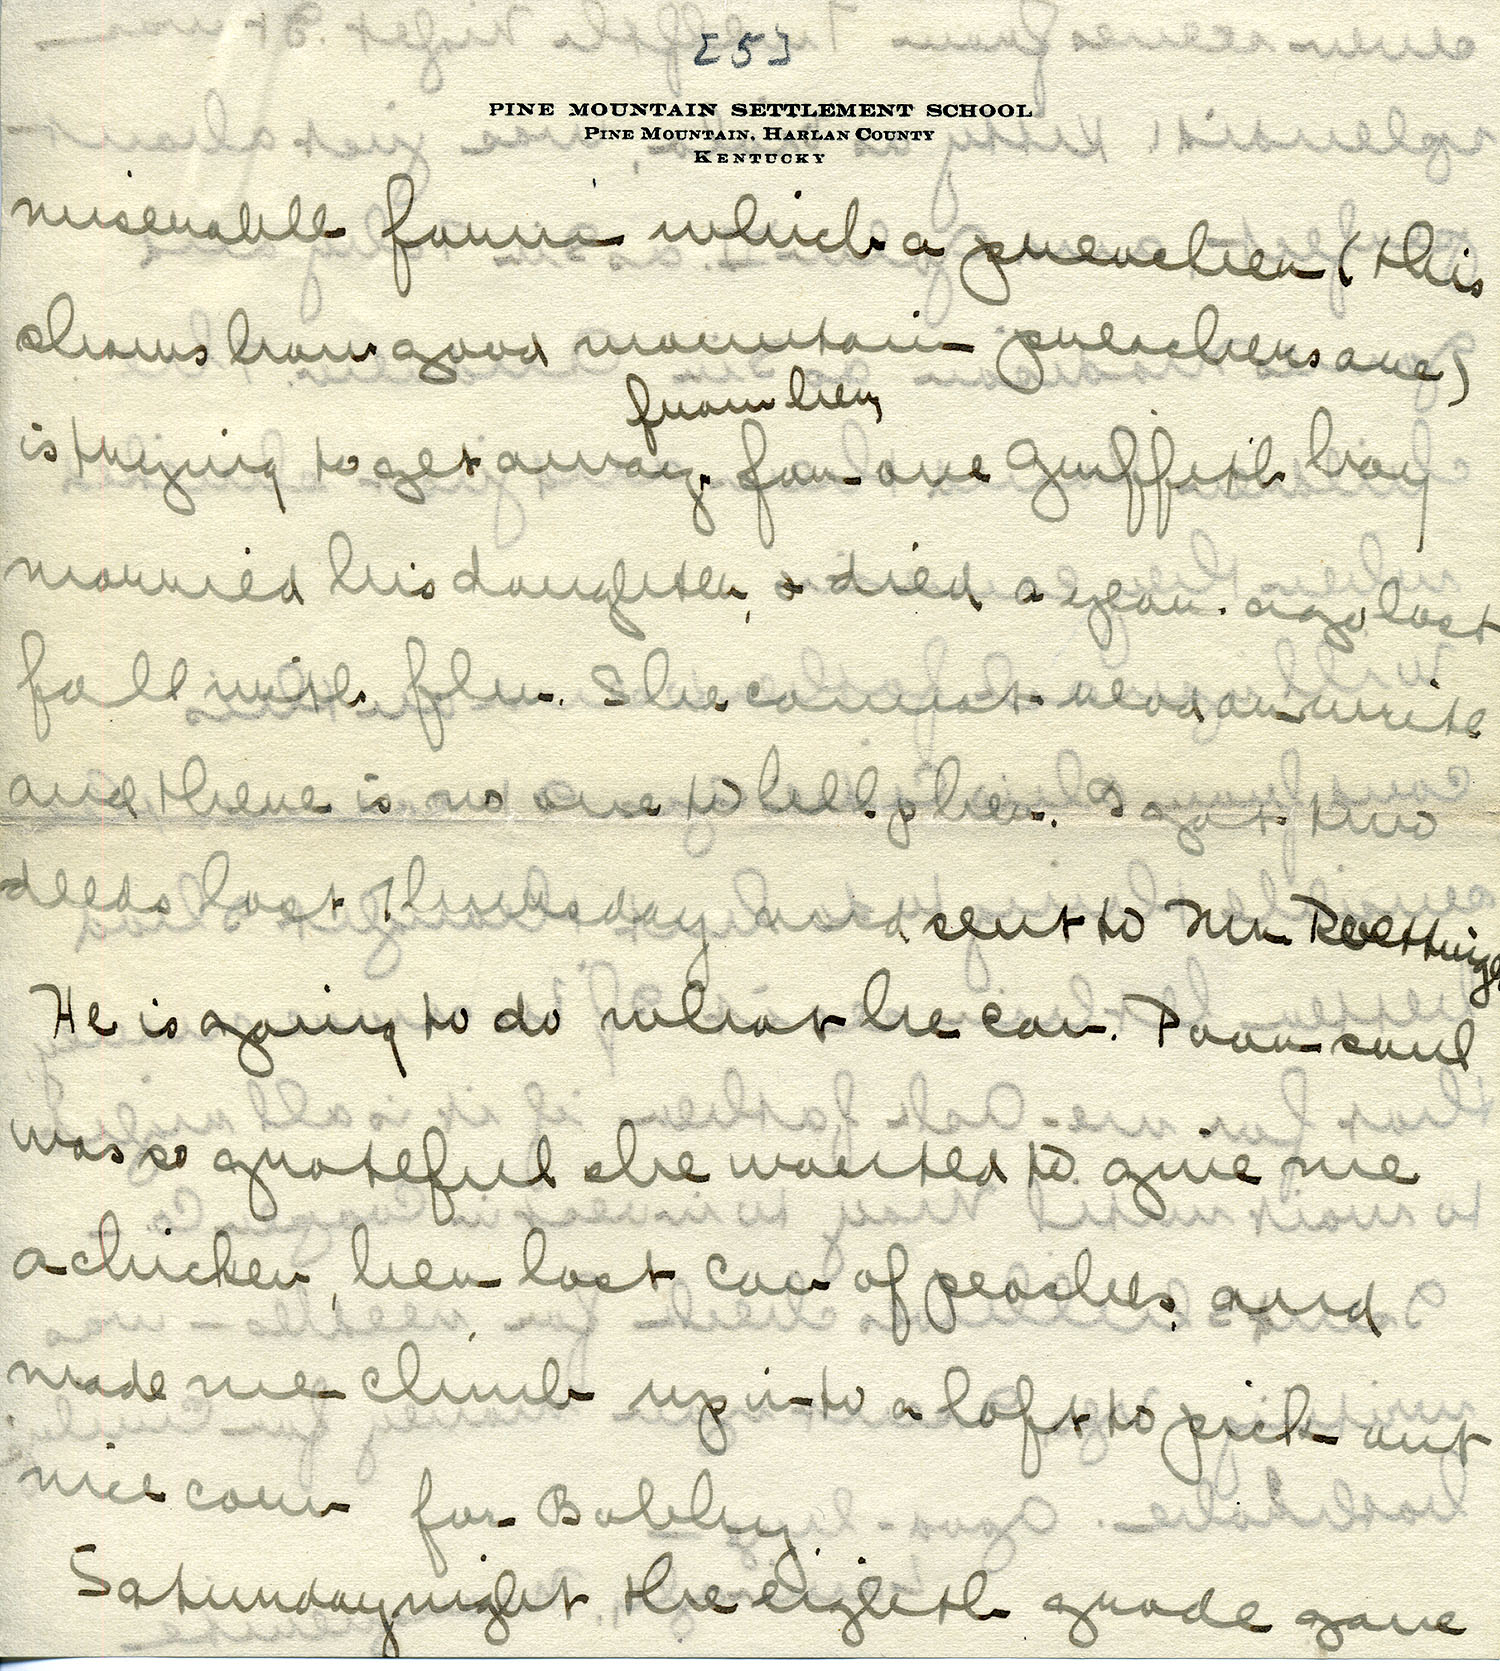 [5]
PINE MOUNTAIN SETTLEMENT SCHOOL
PINE MOUNTAIN, HARLAN COUNTY
KENTUCKY
miserable farm which a preacher (this
shows how good mountain preachers are)
from her,
is trying to get away. for one Griffith boy
married his daughter, & died a year ago last
fall with flu. She cannot read or write
and there is no one to help her. I got two
deeds last Thursday and sent to Mr. Roettinger
He is going to do what he can. Poor soul
was so grateful she wanted to give me
a chicken, her last can of peaches, and
made me climb up into a loft to pick out
nice corn for Bobby.
Saturday night, the eighth grade gave